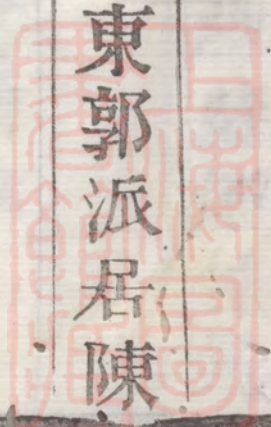 東郭派居陳